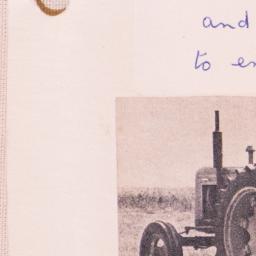 and
to